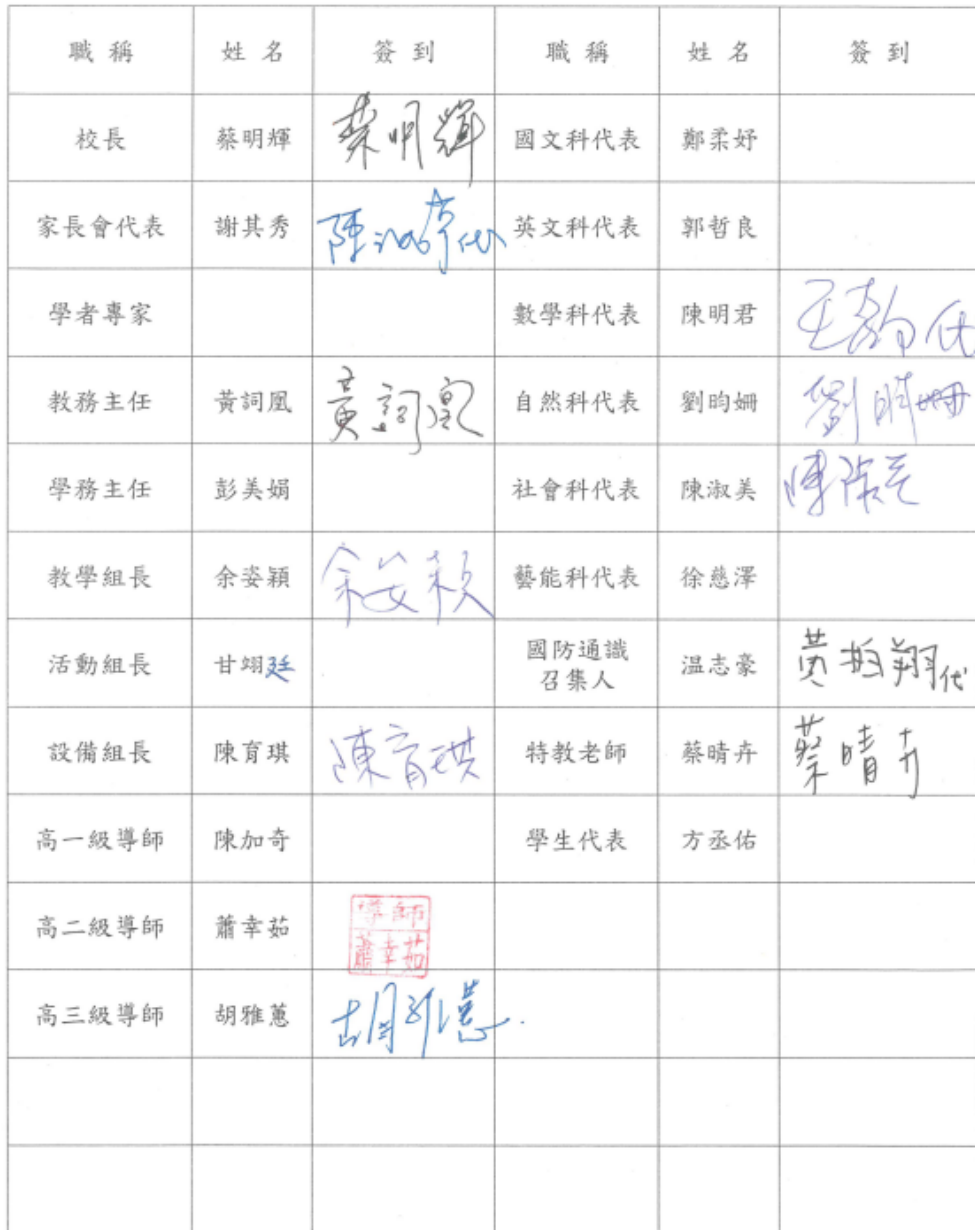 職稱 姓名 簽到 職稱 姓名 簽到
校長 蔡明輝 蔡明輝 國文科代表 鄭柔妤
家長會代表 謝其秀 英文科代表 郭哲良
學者專家 數學科代表 陳明君 代
教務主任 黃詞凰 黃詞凰 自然科代表 劉昀姍 劉昀姍
學務主任 彭美娟 社會科代表 陳淑美 陳
教學組長 余姿穎 余姿穎 藝能科代表 徐慈澤
活動組長 甘翊廷 國防通識
召集人 温志豪 黃振翔代
設備組長 陳育琪 陳育琪 特教老師 蔡晴卉 蔡晴卉
高一級導師 陳加奇 學生代表 方丞佑
高二級導師 蕭幸茹 導師
蕭幸茹
高三級導師 胡雅蕙 胡雅蕙